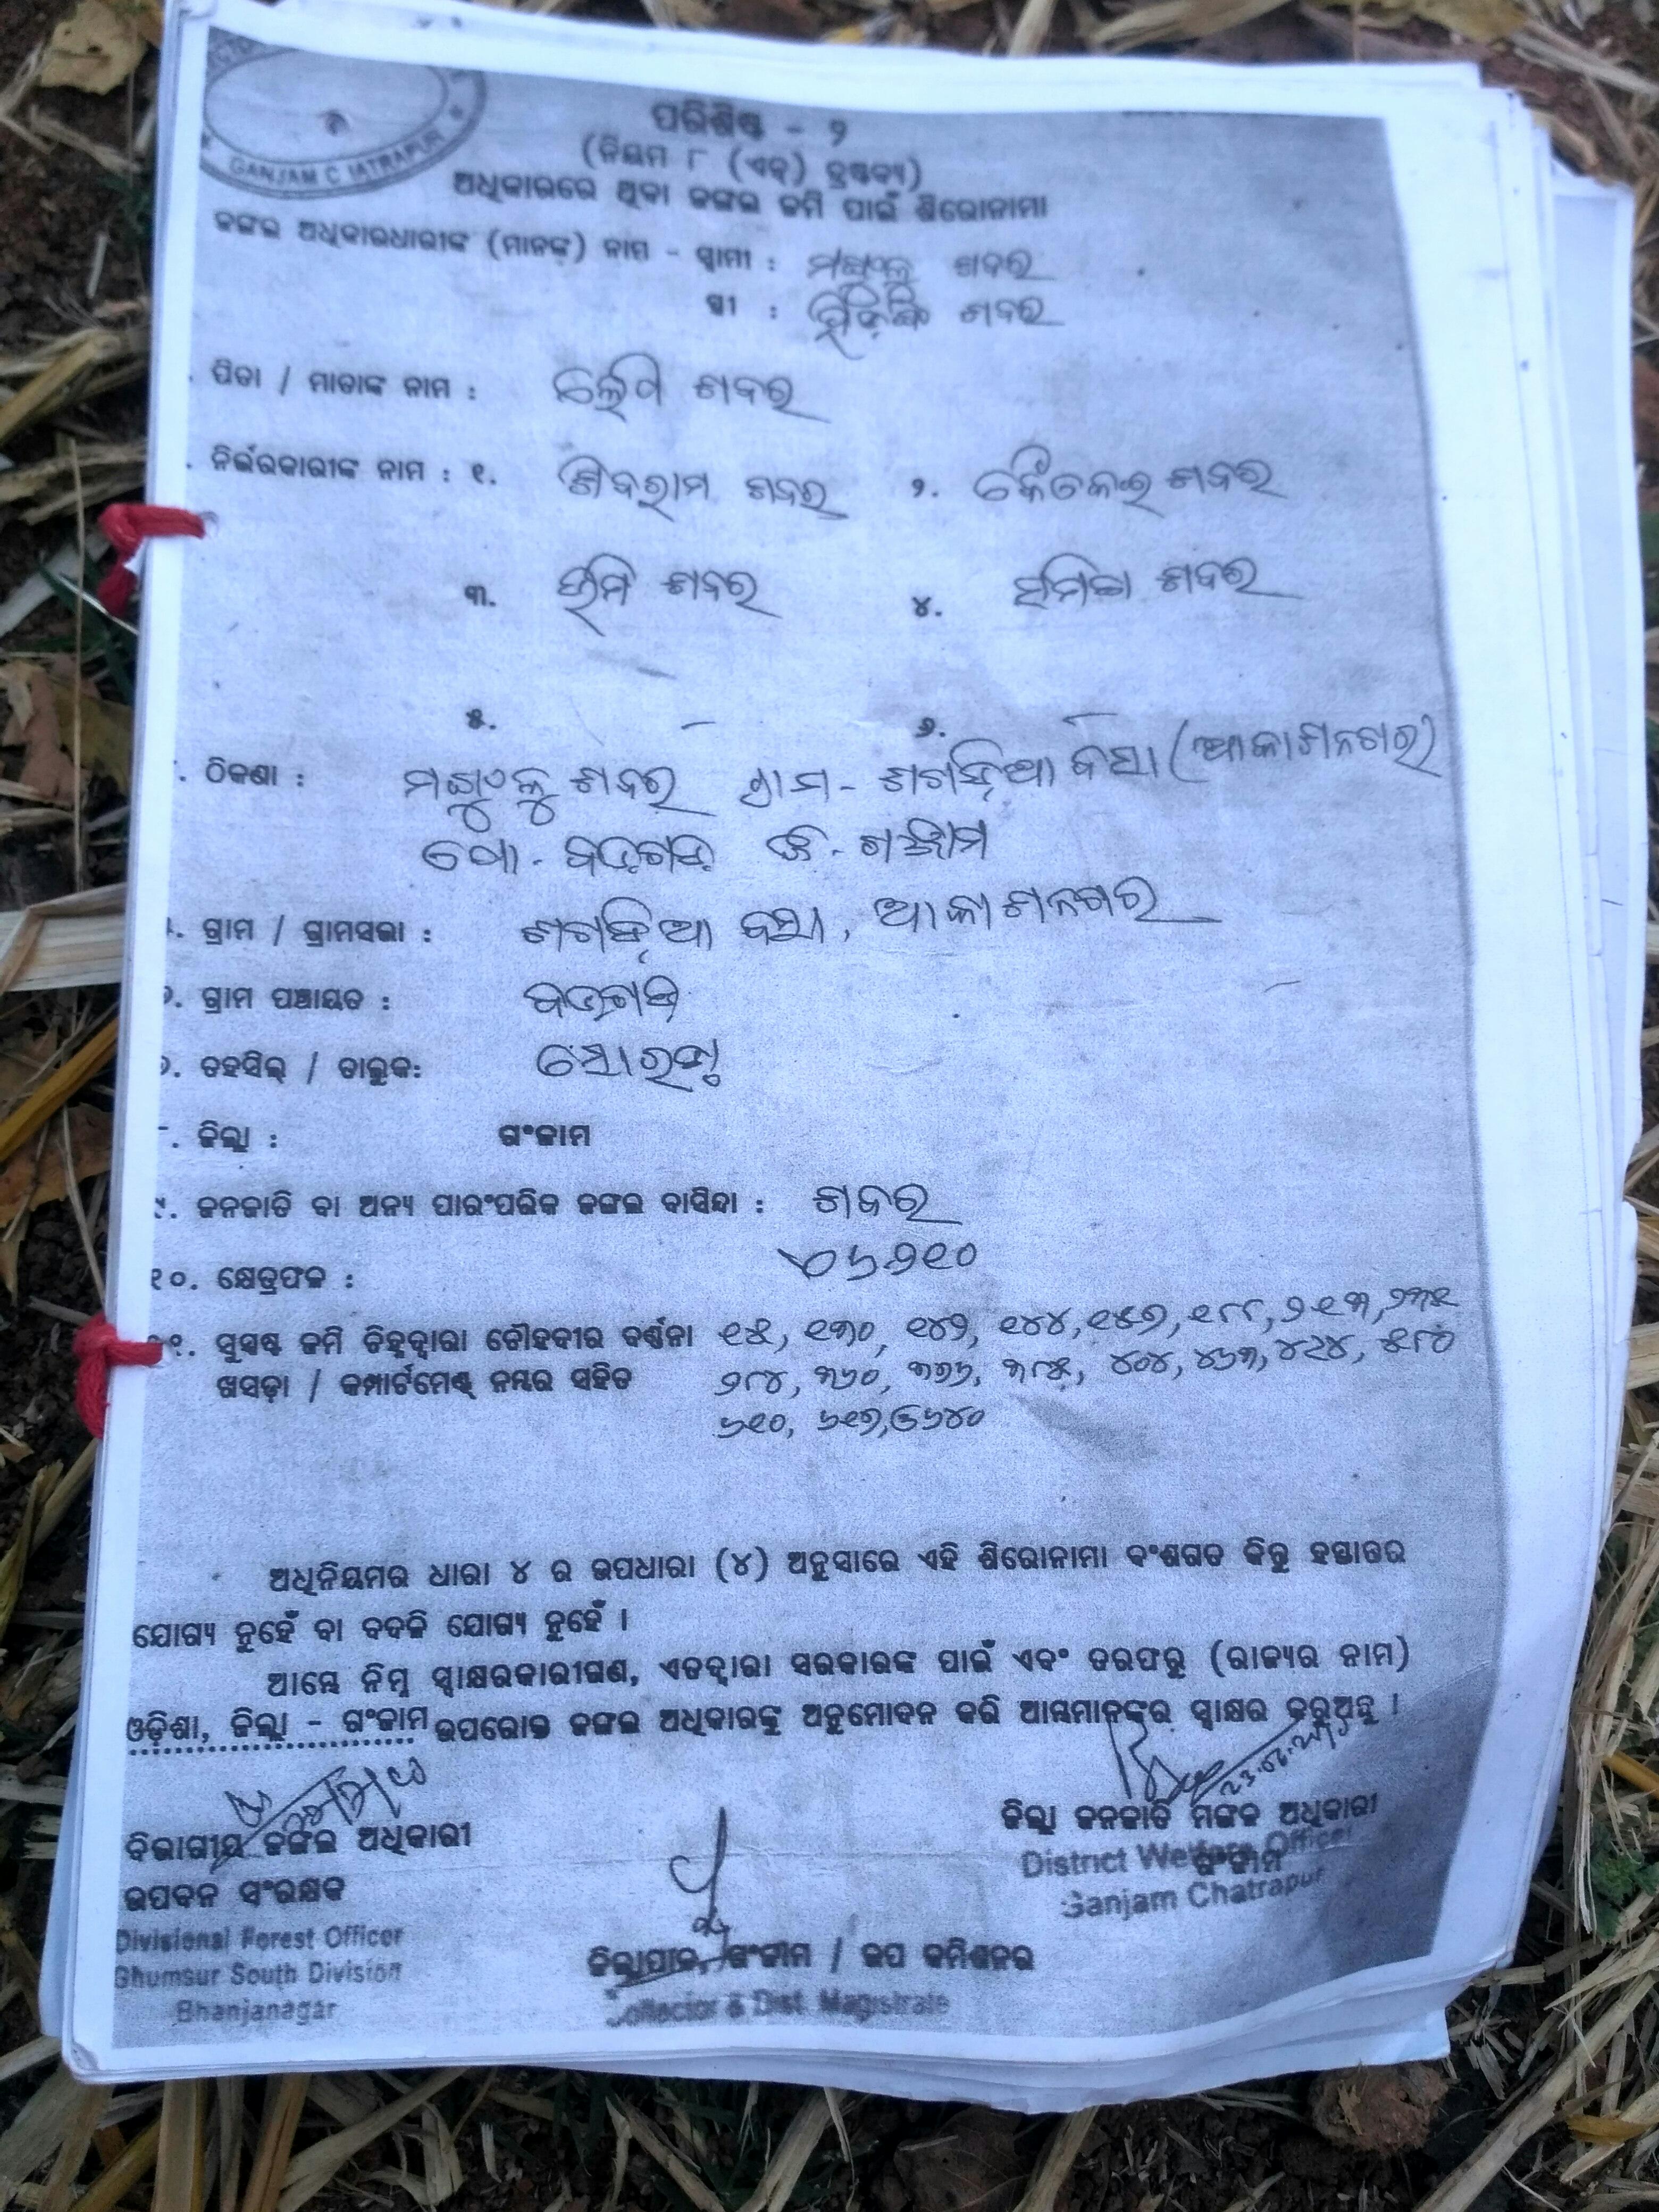 GANJAM C IATRAPUR
ପରିଶିଷ୍ଟ - ୨
(ନିୟମ ୮ (ଏଚ୍) ଦ୍ରଷ୍ଟବ୍ୟ)
ଅଧିକାରରେ ଥିବା ଜଙ୍ଗଲ ଜମି ପାଇଁ ଶିରୋନାମା
ଜଙ୍ଗଲ ଅଧିକାରଧାରୀଙ୍କ (ମାନଙ୍କ) ନାମ - ସ୍ୱାମୀ : ଶବର
ସ୍ତ୍ରୀ : ଶବର
ପିତା / ମାତାଙ୍କ ନାମ : ଶବର
ନିର୍ଭରକାରୀଙ୍କ ନାମ : ୧. ଶିବରାମ ଶବର ୨. କୈତକଇ ଶବର
୩. ଶବର ୪. ଶବର
୫. - ୬. -
ଠିକଣା : ଶବର ଗ୍ରାମ - ଶଗଡ଼ିଆ ବସା (ଆକାଶନଗର)
ପୋ - ବଡ଼ଗଡ଼ ଜି - ଗଞ୍ଜାମ
ଗ୍ରାମ / ଗ୍ରାମସଭା : ଶଗଡ଼ିଆ ବସା, ଆକାଶନଗର
ଗ୍ରାମ ପଞ୍ଚାୟତ : ବଡ଼ଗଡ଼
ତହସିଲ୍ / ତାଲୁକ: ସୋରଡ଼ା
ଜିଲ୍ଲା : ଗଂଜାମ
୯. ଜନଜାତି ବା ଅନ୍ୟ ପାରଂପରିକ ଜଙ୍ଗଲ ବାସିନ୍ଦା : ଶବର
୧୦. କ୍ଷେତ୍ରଫଳ :
୧୧. ସୁସ୍ପଷ୍ଟ ଜମି ଚିହ୍ନଦ୍ୱାରା ଚୌହଦୀର ବର୍ଣ୍ଣନା ୧୫, ୧୩୦, ୧୪୨, ୧୪୪, ୧୫୭, ୧୮୮, ୨୧୩, ୨୩୫
ଖସଡ଼ା / କମ୍ପାର୍ଟମେଣ୍ଟ୍ ନମ୍ବର ସହିତ ୨୮୪, ୩୬୦, ୩୭୬, ୩୮୫, ୪୦୪, ୪୬୩, ୪୨୪, ୫୮୦
୬୧୦, ୬୧୭, ଓ ୬୪୦
ଅଧିନିୟମର ଧାରା ୪ ର ଉପଧାରା (୪) ଅନୁସାରେ ଏହି ଶିରୋନାମା ବଂଶଗତ କିନ୍ତୁ ହସ୍ତାନ୍ତର
ଯୋଗ୍ୟ ନୁହେଁ ବା ବଦଳି ଯୋଗ୍ୟ ନୁହେଁ ।
ଆମ୍ଭେ ନିମ୍ନ ସ୍ୱାକ୍ଷରକାରୀଗଣ, ଏତଦ୍ୱାରା ସରକାରଙ୍କ ପାଇଁ ଏବଂ ତରଫରୁ (ରାଜ୍ୟର ନାମ)
ଓଡ଼ିଶା, ଜିଲ୍ଲା - ଗଂଜାମ ଉପରୋକ୍ତ ଜଙ୍ଗଲ ଅଧିକାରଙ୍କୁ ଅନୁମୋଦନ କରି ଆମ୍ଭମାନଙ୍କର ସ୍ୱାକ୍ଷର କରୁଅଛୁ ।
ଜିଲ୍ଲା ଜନଜାତି ମଙ୍ଗଳ ଅଧିକାରୀ
ଗଂଜାମ
District Welfare Officer
Ganjam Chatrapur
ବିଭାଗୀୟ ଜଙ୍ଗଲ ଅଧିକାରୀ
ଉପବନ ସଂରକ୍ଷକ
Divisional Forest Officer
Ghumsur South Division
Bhanjanagar
ଜିଲ୍ଲାପାଳ, ଗଂଜାମ / ଉପ କମିଶନର
Collector & Dist. Magistrate